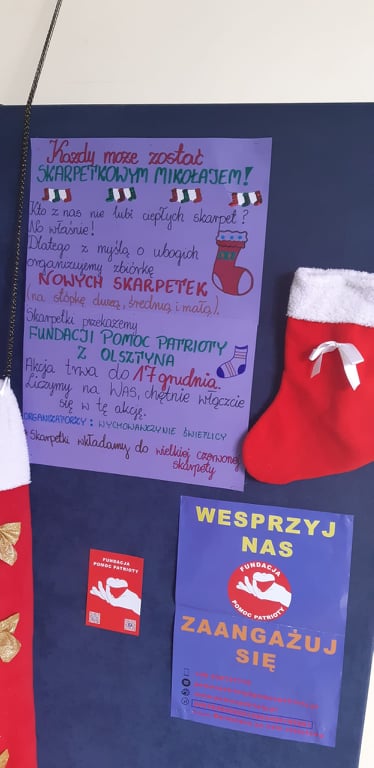 Każdy może zostać
SKARPETKOWYM MIKOŁAJEM!
Kto z nas nie lubi ciepłych skarpet?
No właśnie!
Dlatego z myślą o ubogich
organizujemy zbiórkę
NOWYCH SKARPETEK
(na stópkę dużą, średnią i małą).
Skarpetki przekażemy
FUNDACJI POMOC PATRIOTY
Z OLSZTYNA
Akcja trwa do 17 grudnia.
Liczymy na WAS, chętnie włączcie
się w tę akcję.
ORGANIZATORZY: WYCHOWAWCZYNIE ŚWIETLICY
Skarpetki wkładamy do wielkiej czerwonej
skarpety
FUNDACJA
POMOC PATRIOTY
WESPRZYJ
NAS
FUNDACJA
POMOC PATRIOTY
ZAANGAŻUJ
SIĘ